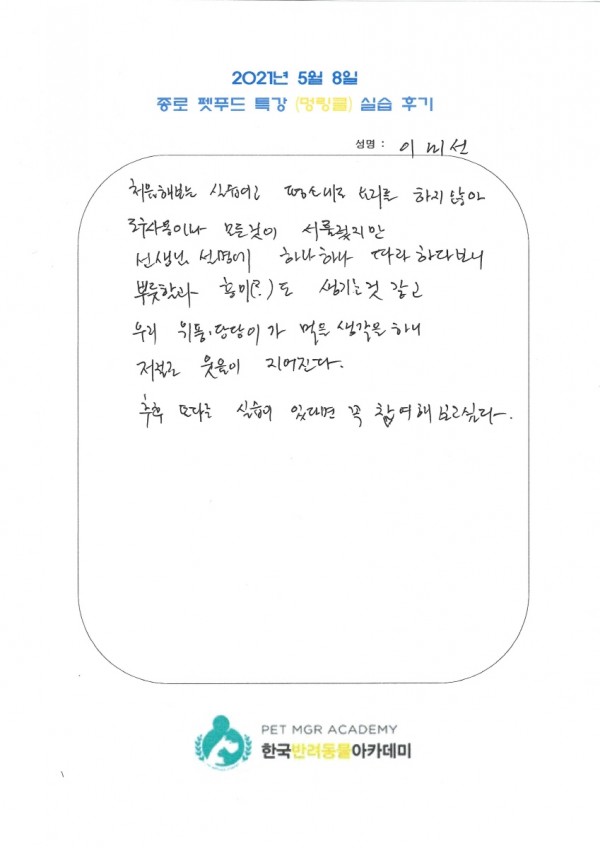 2021년 5월 8일
종로 펫푸드 특강 (멍링클) 실습 후기
성명 : 이미선
처음해보는 실습이고 평소에도 요리를 하지 않아
모든것이 서툴렀지만
선생님 설명에 하나하나 따라 하다보니
뿌듯함과 흥미(?)도 생기는것 같고
우리 위풍,당당이가 먹을 생각을 하니
저절로 웃음이 지어진다.
추후 또다른 실습이 있다면 꼭 참여해 보고싶다.
PET MGR ACADEMY
한국반려동물아카데미